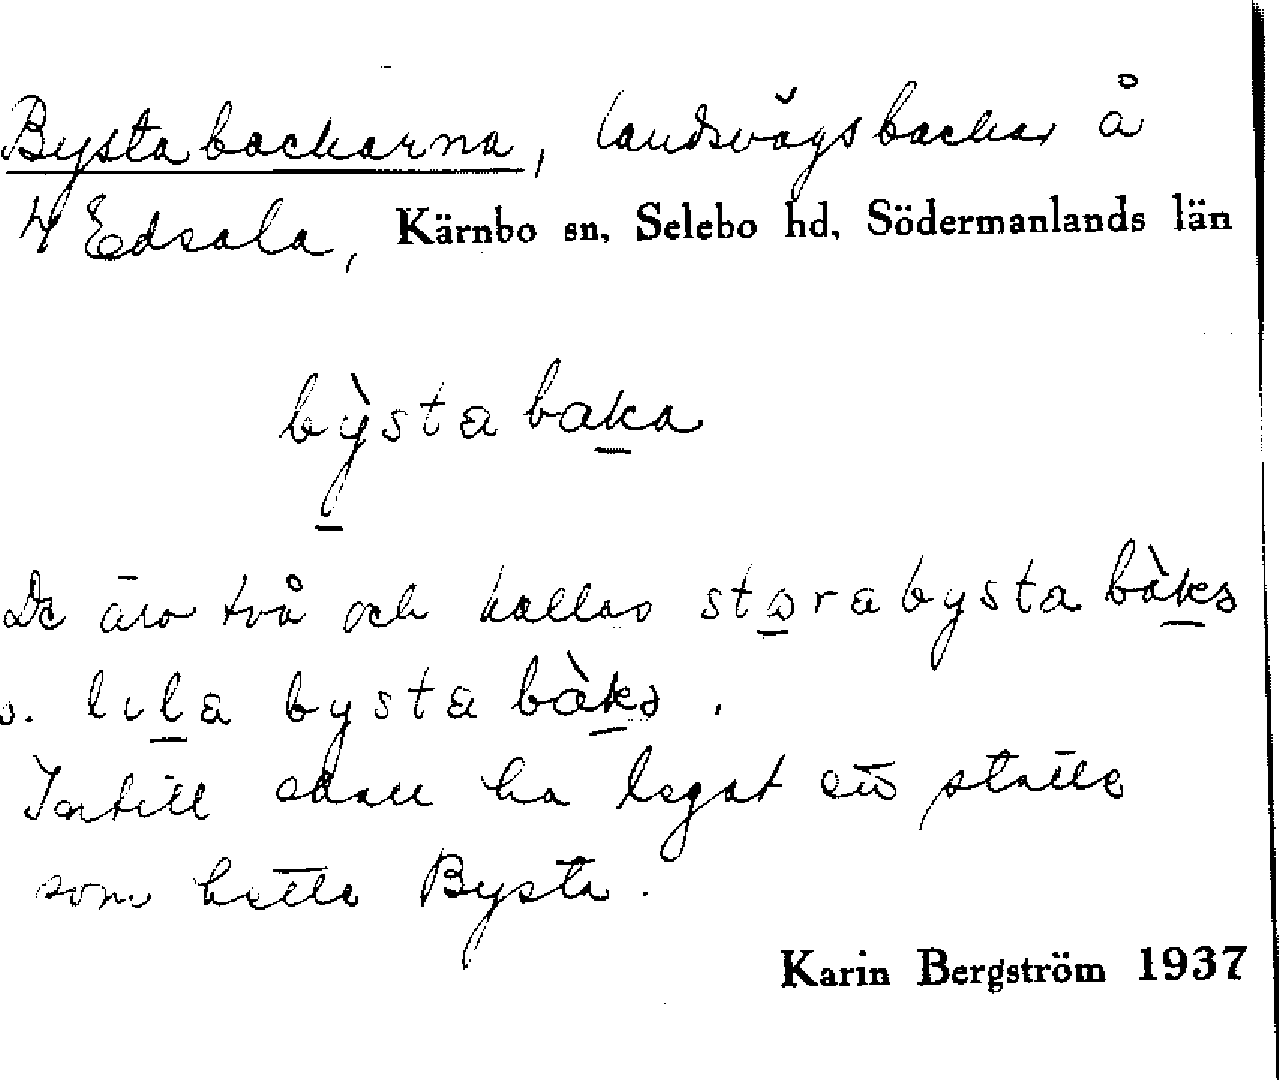 Bystabackarna, landsvägsbackar å
Edsala, Kärnbo sn, Selebo hd, Södermanlands län
bỳstabaka
De äro två och kallas storabystabàks
o. lilabystabàks.
Intill skall ha legat ett ställe
som hette Bysta.
Karin Bergström 1937